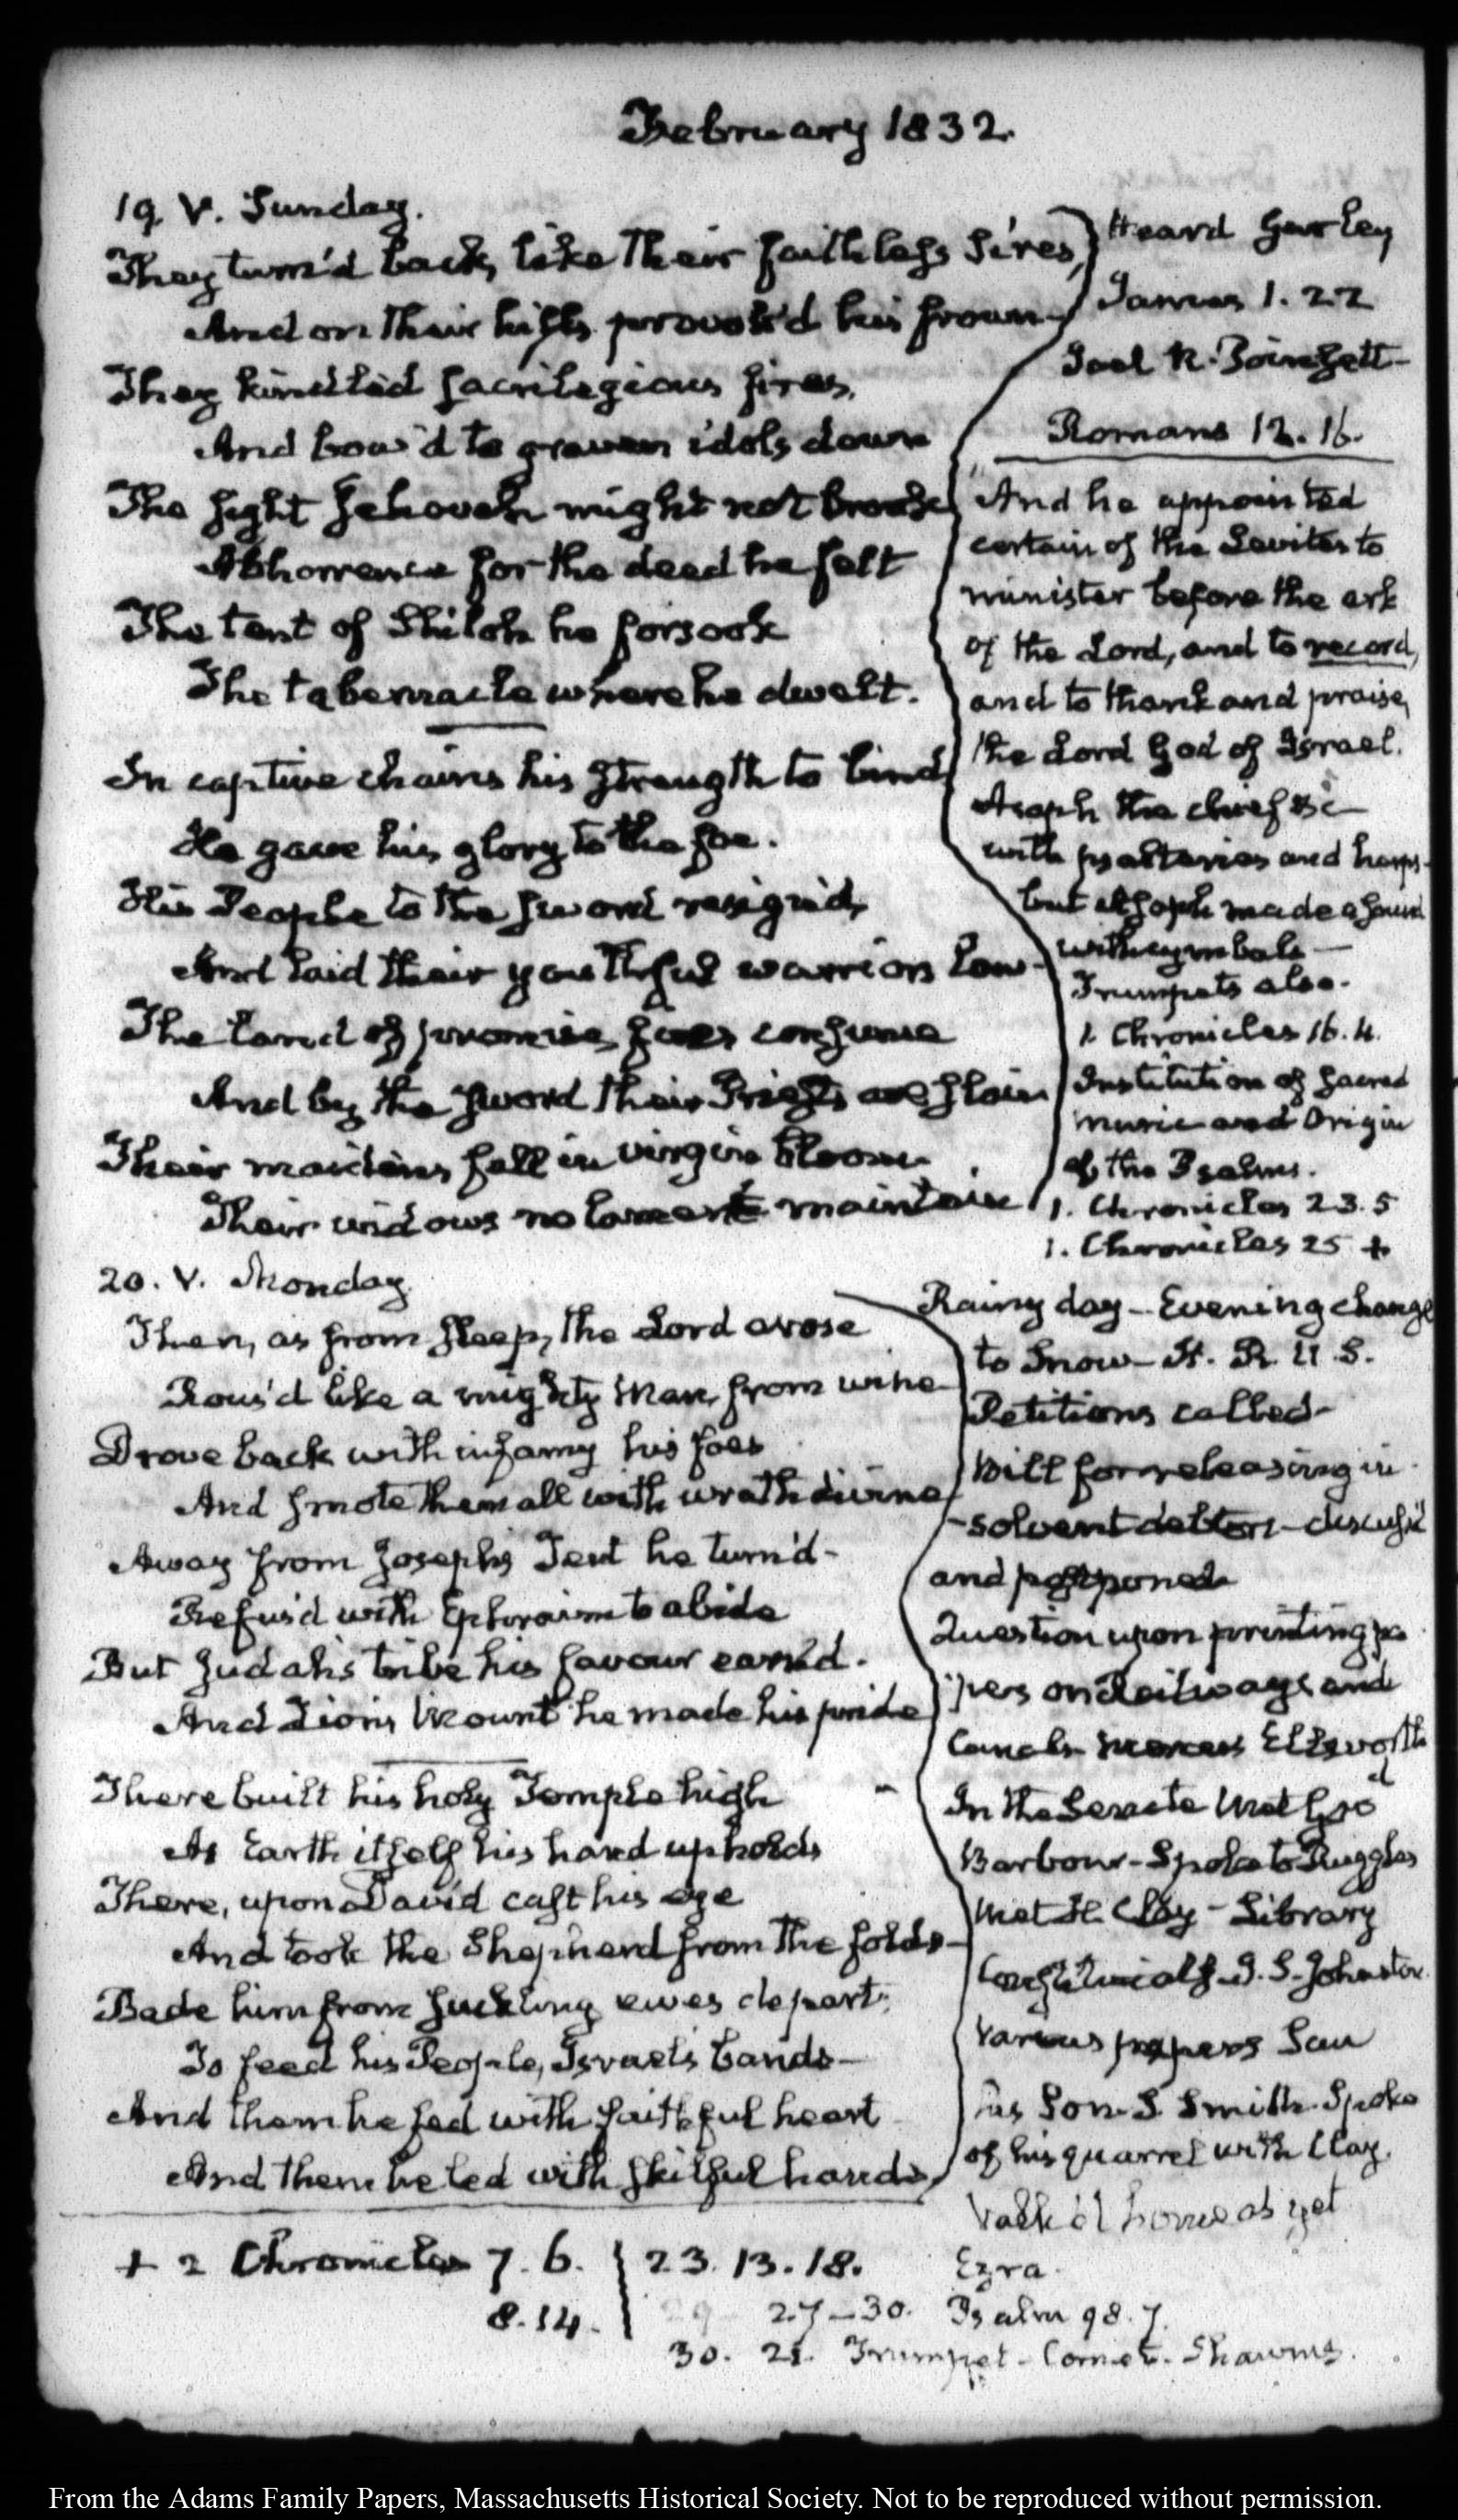 February 1832.
19. V. Sunday.
They turn'd back, like their faithless sires,
And on their hills provok'd his frown—
They kindled sacrilegious fires,
And bow'd to graven idols down
The sight Jehovah might not brook
Abhorrence for the deed he felt
The tent of Shiloh he forsook
The tabernacle where he dwelt.
In captive chains his strength to bind
He gave his glory to the foe.
His People to the sword resign'd,
And laid their youthful warriors low—
The land of promise fires consume
And by the sword their Priests are slain
Their maidens fall in virgin bloom
Their widows no lament maintain
Heard Gurley
James 1. 22
Joel R. Poinsett—
Romans 12. 16.
And he appointed
certain of the Levites to
minister before the ark
of the Lord, and to record,
and to thank and praise,
the Lord God of Israel.
Asaph the chief &c
with psalteries and harps—
but Asaph made a sound
with cymbals—
Trumpets also.
1 Chronicles 16. 4.
Institution of sacred
music and Origin
of the Psalms.
1. Chronicles 23. 5
1. Chronicles 25 +
20. V. Monday
Then, as from sleep, the Lord arose
Rous'd like a mighty Man from wine
Drove back with infamy his foes
And smote them all with wrath divine
Away from Joseph's Tent he turn'd—
Refus'd with Ephraim to abide
But Judah's tribe his favour earn'd.
And Zion's Mount he made his pride
There built his holy Temple high
As Earth itself his hand upholds
There, upon David cast his eye
And took the Shepherd from the folds—
Bade him from suckling ewes depart,
To feed his People, Israel's bands—
And them he fed with faithful heart
And them he led with skilful hands,
Rainy day—Evening change
to Snow—H. R. U. S.
Petitions called—
Bill for releasing in
-solvent debtors—discuss'd
and postponed
Question upon printing pa
pers on Railways and
Canals Ellsworth
In the Senate Met
Barbour—Spoke to Ruggles
Met H. Clay—Library
J. S. Johnston
Various papers Saw
his Son S. Smith Spoke
of his quarrel with Clay.
Walk'd home as yet
+ 2 Chronicles 7. 6. | 23. 13. 18. Ezra.
8. 14. | 29 27—30. Psalm 98. 7.
30. 21. Trumpet—Cornet—Shawms.
From the Adams Family Papers, Massachusetts Historical Society. Not to be reproduced without permission.